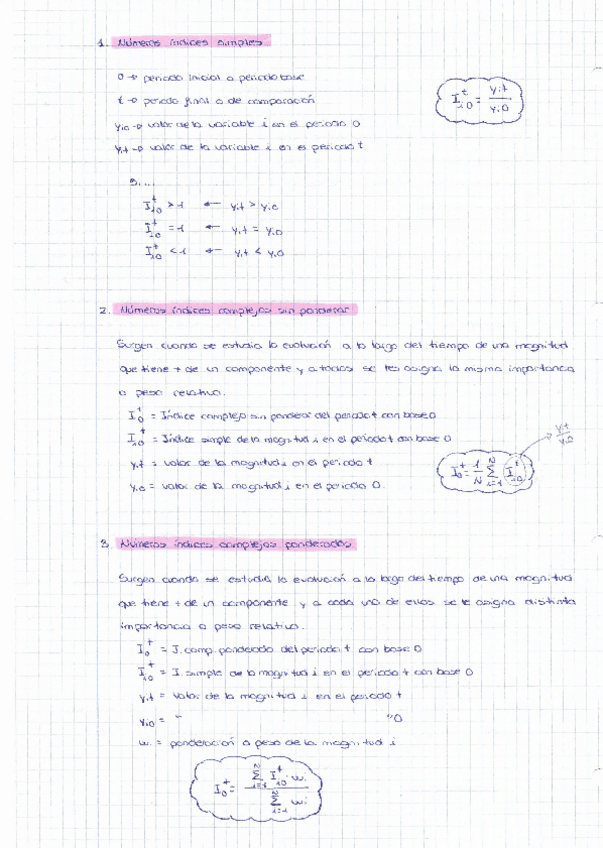 1. Números índices simples
0 → periodo inicial o periodo base
t → periodo final o de comparación
yi0 → valor de la variable i en el periodo 0
yit → valor de la variable i en el periodo t
I_i0^t = yit / yi0
Si...
I_i0^t > 1 ← yit > yi0
I_i0^t = 1 ← yit = yi0
I_i0^t < 1 ← yit < yi0
2. Números índices complejos sin ponderar
Surgen cuando se estudia la evolución a lo largo del tiempo de una magnitud
que tiene + de un componente y a todos se les asigna la misma importancia
o peso relativo.
I_0^t = Índice complejo sin ponderar del periodo t con base 0
I_i0^t = Índice simple de la magnitud i en el periodo t con base 0
yit = valor de la magnitud i en el periodo t
yi0 = valor de la magnitud i en el periodo 0.
I_0^t = 1/N Σ_{i=1}^{N} I_i0^t → yit / yi0
3. Números índices complejos ponderados
Surgen cuando se estudia la evolución a lo largo del tiempo de una magnitud
que tiene + de un componente y a cada uno de ellos se le asigna distinta
importancia o peso relativo.
I_0^t = I. comp. ponderado del periodo t con base 0
I_i0^t = I. simple de la magnitud i en el periodo t con base 0
yit = valor de la magnitud i en el periodo t
yi0 = " "0
wi = ponderación o peso de la magnitud i
I_0^t = Σ_{i=1}^{N} I_i0^t wi / Σ_{i=1}^{N} wi